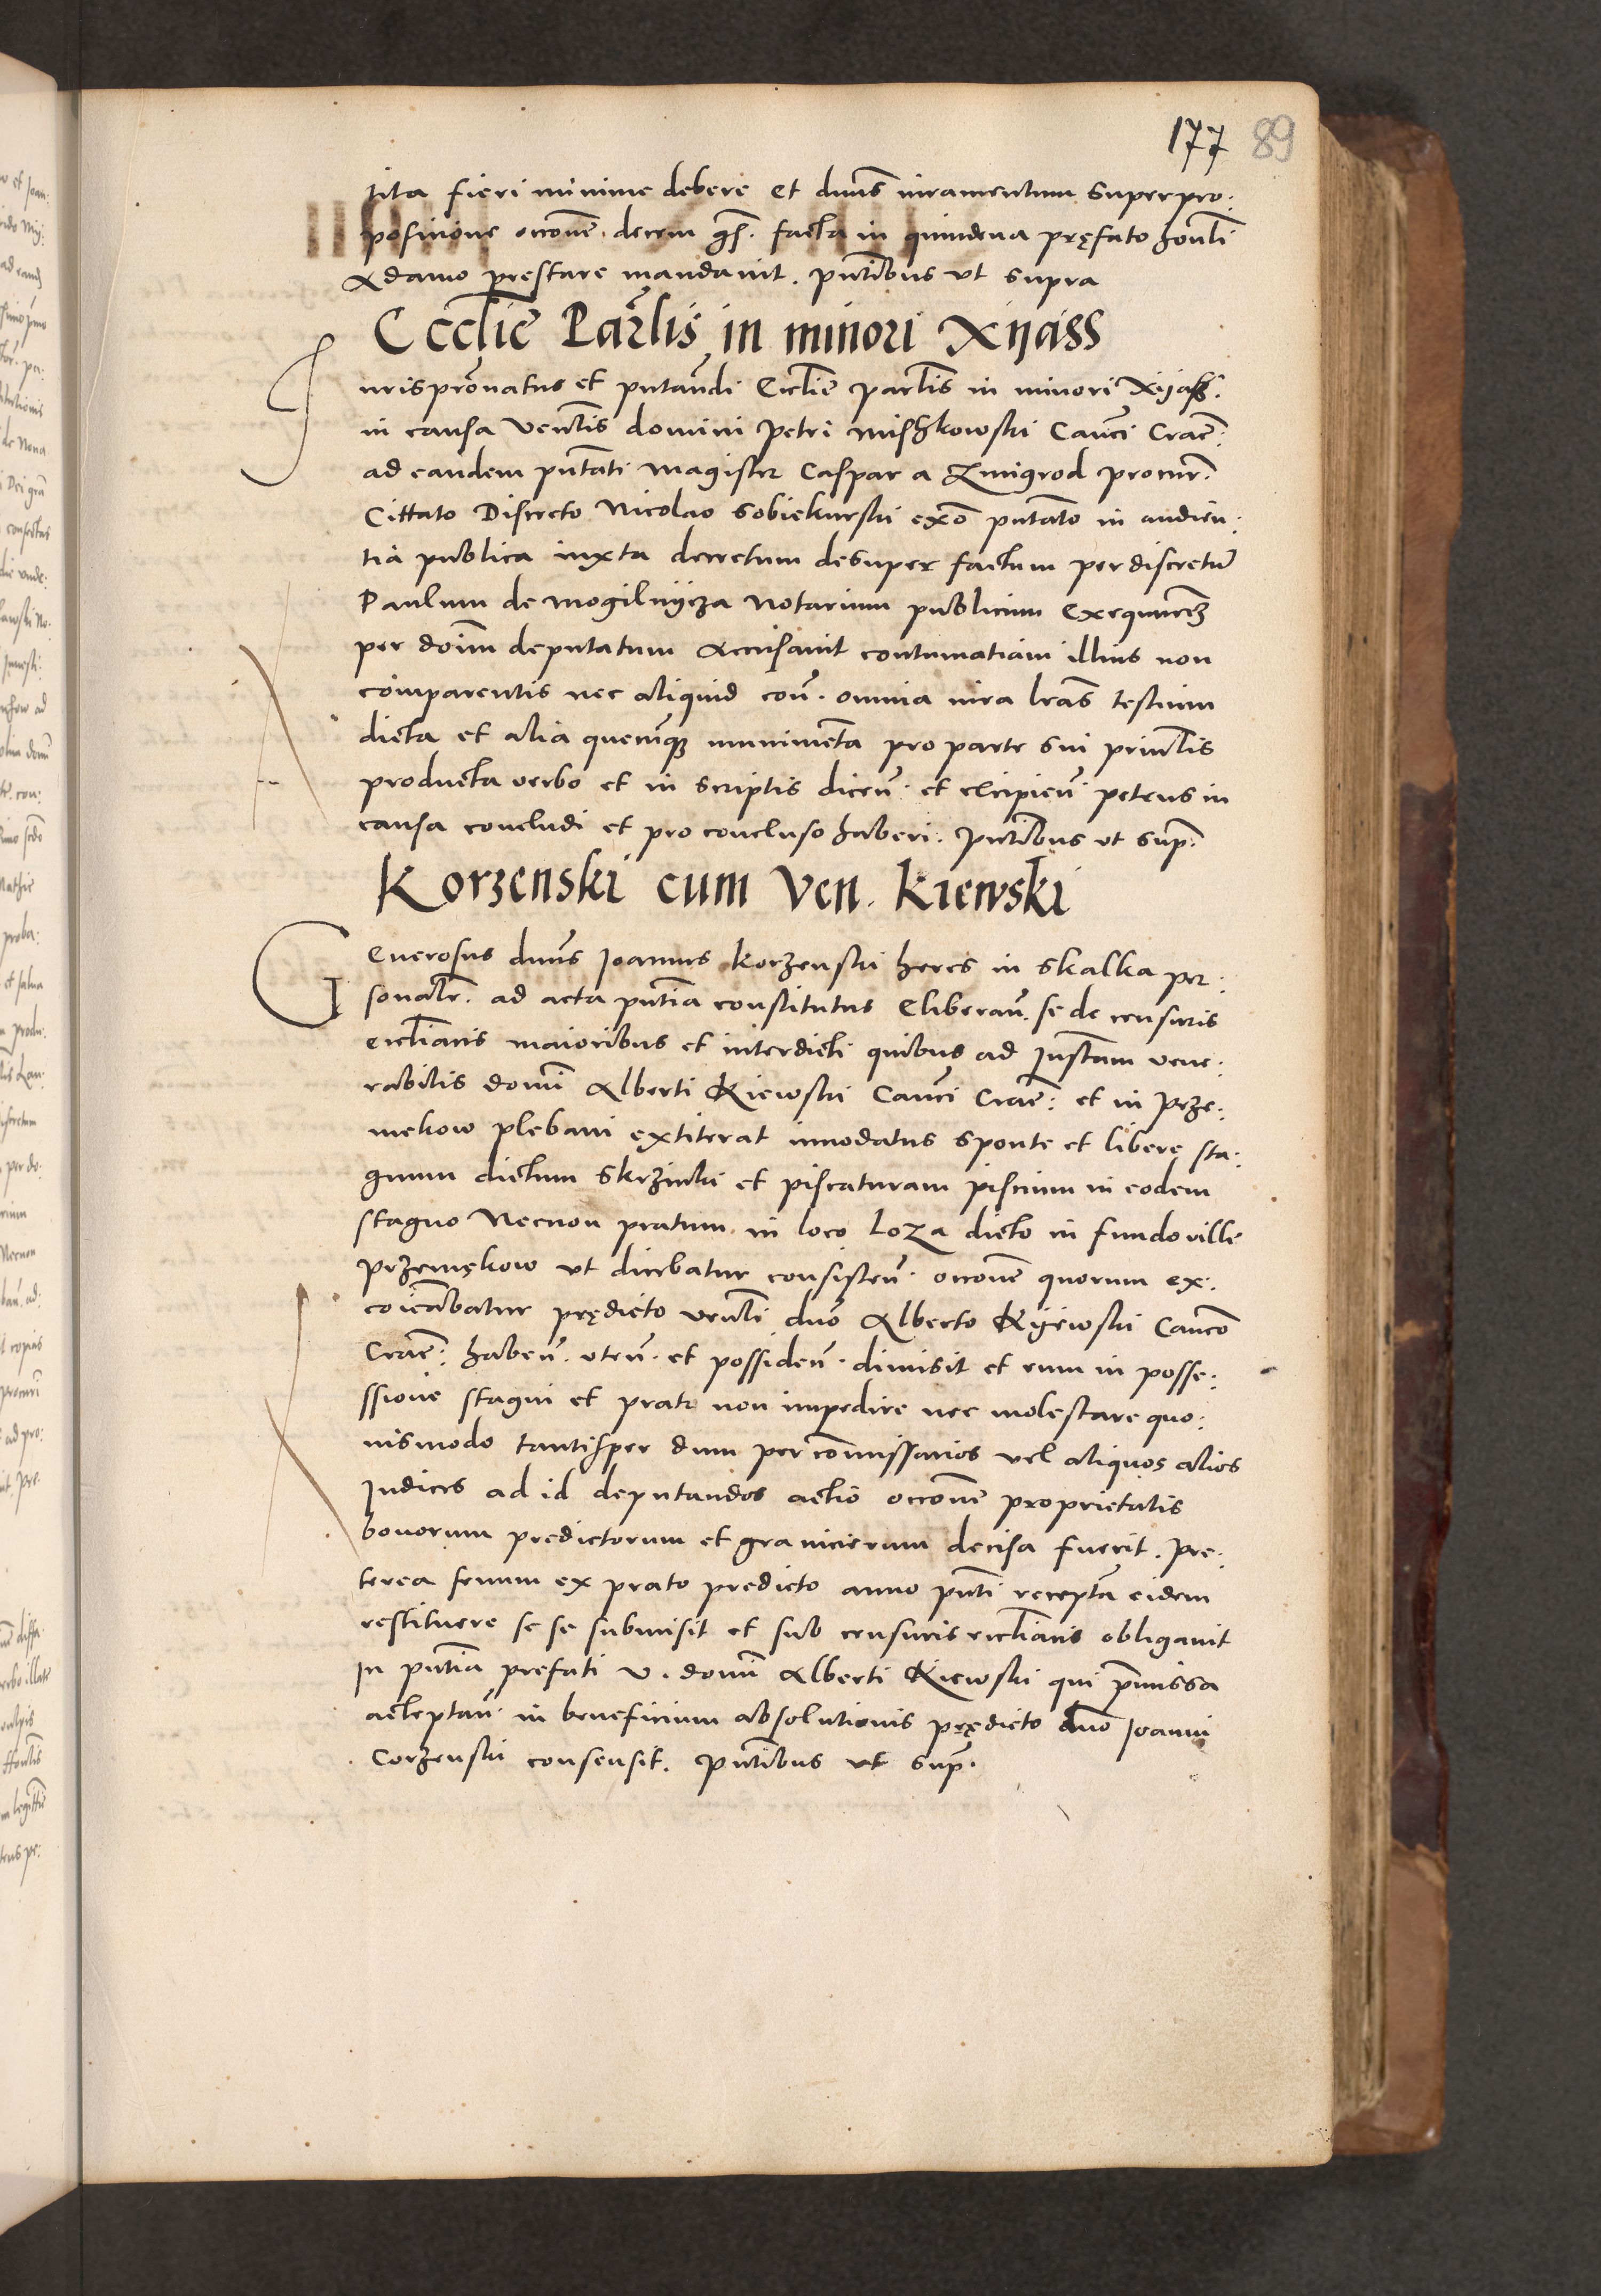 177 89
tita fieri minime debere et dnus iuramentum super pro:
positione occone decem gs. facta in quindena pręfato honli
Adamo prestare mandauit. pntibus vt supra
Ecclie Parlis in minori Xijass
Jurispronatus et pntandi Ecclie parlis in minori Xijass.
in causa Venlis domini Petri Mishkowski Canci Crac:
ad eandem pntati Magister Caspar a Zmigrod procur.
Cittato Discreto Nicolao Sobiekurski exo pntato in audien:
tia publica iuxta decretum desuper factum per discretu
Paulum de Mogilnycza Notarium publicum
per doim deputatum Accusauit contumatiam illius non
comparentis nec aliquid con. omnia iura lras testium
dicta et alia quecunq munimenta pro parte sui prinlis
producta verbo et in scriptis dicen. et excipien. petens in
causa concludi et pro concluso haberi. pntibus vt sup.
Korzenski cum Ven. Kiewski
Generosus dnus Joannes Korzenski heres in Skalka per:
sonalr. ad acta pntia constitutus Eliberan. se de censuris
ecclianis maioribus et interdicti quibus ad Instam vene:
rabilis domi Alberti Kiewski Canci Crac: et in Prze:
mekow plebani extiterat innodatus sponte et liberę sta:
gnum dictum Skrzinki et piscaturam piscium in eodem
stagno Necnon pratum in loco Loza dicto in fundo ville
Przemękow vt dicebatur consisten. occone quorum ex:
coicabatur prędicto venli dno Alberto Kyiewski Canco
Crac: haben. vten. et possiden. dimisit et eum in posse:
ssione stagni et prati non impedire nec molestare quo:
uismodo tantisper dum per comissarios vel aliquos alios
Judices ad id deputandos actio occone proprietatis
bonorum predictorum et granicierum decisa fuerit. Pre:
terea fenum ex prato predicto anno pnti recepta eidem
restituere se se submisit et sub censuris ecclianis obligauit
In pntia prefati v. domi Alberti Kiewski qui pmissa
acceptan. in beneficium absolutionis prędicto dno Joanni
Corzenski consensit. pntibus vt sup.